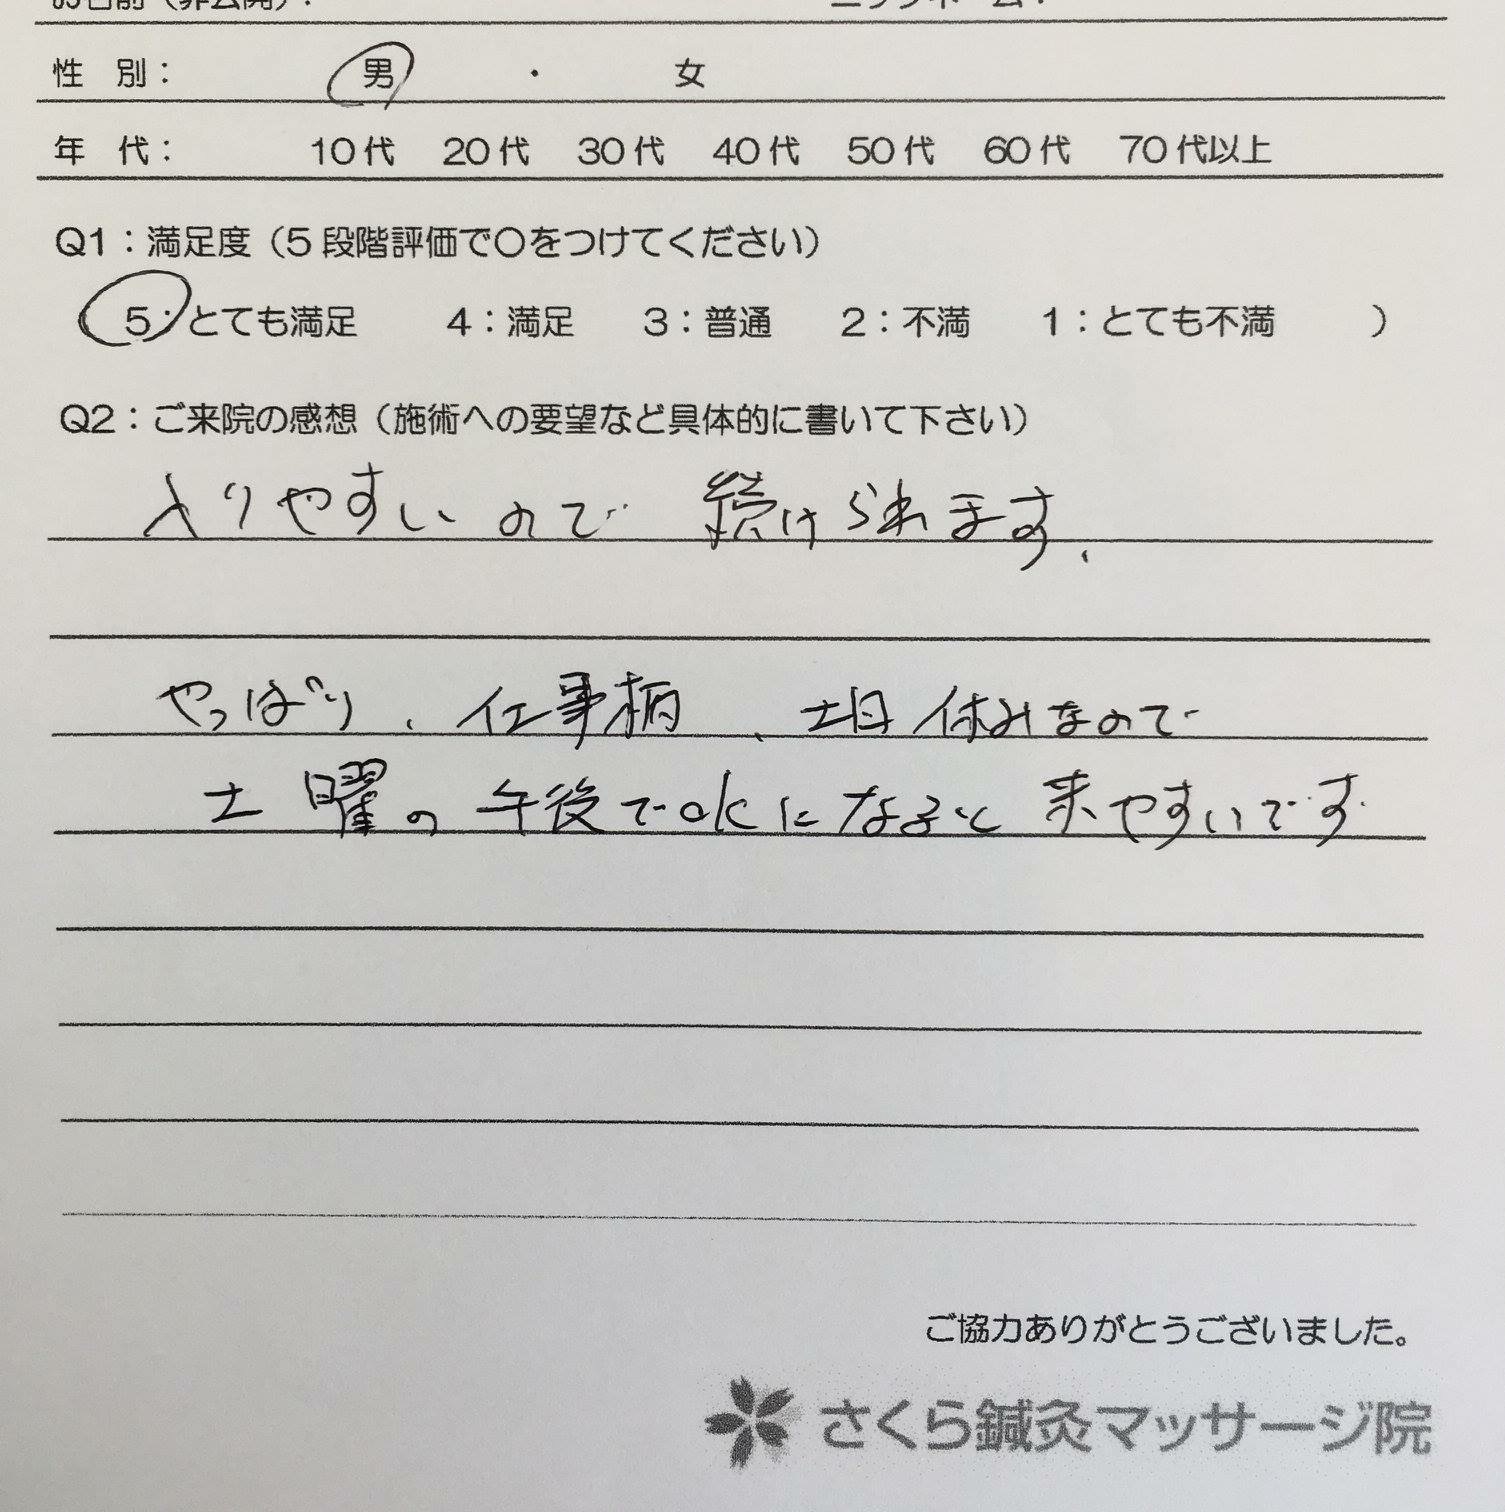 お名前（非公開）： ニックネーム：
性 別： 男 ・ 女
年 代： 10代 20代 30代 40代 50代 60代 70代以上
Q1：満足度（5段階評価で〇をつけてください）
5：とても満足 4：満足 3：普通 2：不満 1：とても不満 ）
Q2：ご来院の感想（施術への要望など具体的に書いて下さい）
入りやすいので 続けられます.
やっぱり、仕事柄、土日休みなので
土曜の午後でokになると来やすいです.
ご協力ありがとうございました。
さくら鍼灸マッサージ院